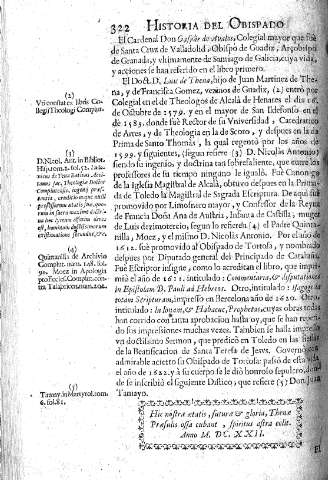 322 HISTORIA DEL OBISPADO
El Cardenal Don Gaspar de Avalos, Colegial mayor que fue
de Santa Cruz de Valladolid, Obispo de Guadix, Arçobispo
de Granada, y vltimamente de Santiago de Galicia, cuya vida,
y acciones se han referido en el libro primero.
El Doct. D. Luis de Thena, hijo de Juan Martinez de The-
na, y de Francisca Gomez, vezinos de Guadix, (2) entrò por
Colegial en el de Theologos de Alcalà de Henares el dia 16.
de Octubre de 1579. y en el mayor de San Ildefonso en el
de 1583. donde fuè Rector de su Vniversidad, Catedratico
de Artes, y de Theologia en la de Scoto, y despues en la de
Prima de Santo Thomàs, la qual regentò por los años de
1599. y siguientes, (segun refiere (3) D. Nicolàs Antonio)
siendo su ingenio, y doctrina tan sobresaliente, que entre los
professores de su tiempo ninguno le igualò. Fuè Canonigo
de la Iglesia Magistral de Alcalà, obtuvo despues en la Prima-
da de Toledo la Magistral de Sagrada Escriptura. De aqui fuè
promovido por Limosnero mayor, y Confessor de la Reyna
de Francia Doña Ana de Austria, Infanta de Castilla, muger
de Luis dezimotercio, segun lo refieren (4) el Padre Quinta-
nilla, Moez, y el mismo D. Nicolàs Antonio. Por el año de
1612. fuè promovido al Obispado de Tortosa, y nombrado
despues por Diputado general del Principado de Cataluña.
Fuè Escriptor insigne, como lo acreditan el libro, que impri-
miò el año de 1611. intitulado: Commentaria, & disputationes
in Epistolam D. Pauli ad Hebræos. Otro, intitulado: Isagoge in
totam Scripturam, impresso en Barcelona año de 1620. Otro,
intitulado: In Ionam, & Habacuc, Prophetas, cuyas obras todas
han corrido con tanta aprobacion hasta oy, que se han repeti-
do sus impressiones muchas vezes. Tambien se halla impresso
vn doctissimo Sermon, que predicò en Toledo en las fiestas
de la Beatificacion de Santa Teresa de Jesus. Governò con
admirable acierto su Obispado de Tortosa, passò de esta vida
el año de 1622. y à su cuerpo se le diò honroso sepulcro, don-
de se inscribiò el siguiente Distico, que refiere (5) Don Juan
Tamayo.
Hic nostræ ætatis, futuræ & gloria, Thenæ
Præsulis ossa cubant, spiritus astra colit.
Anno M. DC. XXII.
El
(2)
Vt constat ex libris Col-
legij Theologi Complut.
(3)
D. Nicol. Ant. in Bibliot.
(4)
Quintanilla de Archivio
Complut.
(5)
Tamay. in Martyrol. tom.
6. fol. 81.